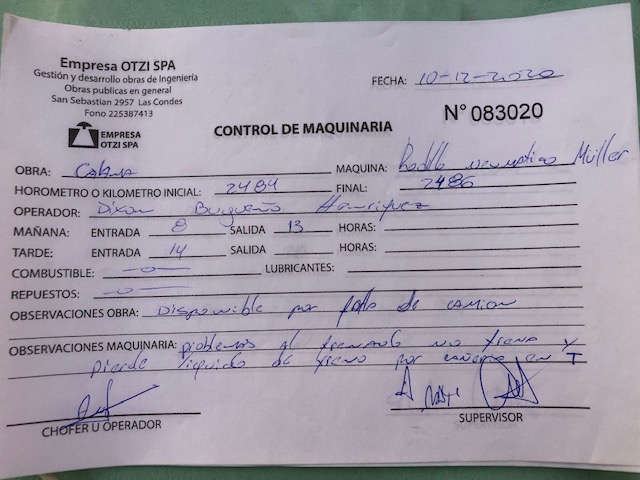 Empresa OTZI SPA
Gestión y desarrollo obras de Ingeniería
Obras publicas en general
San Sebastian 2957 Las Condes
Fono 225387413
FECHA: 10-12-2020
EMPRESA
OTZI SPA
CONTROL DE MAQUINARIA N° 083020
OBRA: MAQUINA: Rodillo neumatico Müller
HOROMETRO O KILOMETRO INICIAL: 2484 FINAL: 2486
OPERADOR:
MAÑANA: ENTRADA 8 SALIDA 13 HORAS:
TARDE: ENTRADA 14 SALIDA HORAS:
COMBUSTIBLE: -0- LUBRICANTES:
REPUESTOS: -0-
OBSERVACIONES OBRA: Disponible por falta de camion
OBSERVACIONES MAQUINARIA: problemas al frenado no frena y
pierde liquido de freno por cañeria en T
CHOFER U OPERADOR
SUPERVISOR